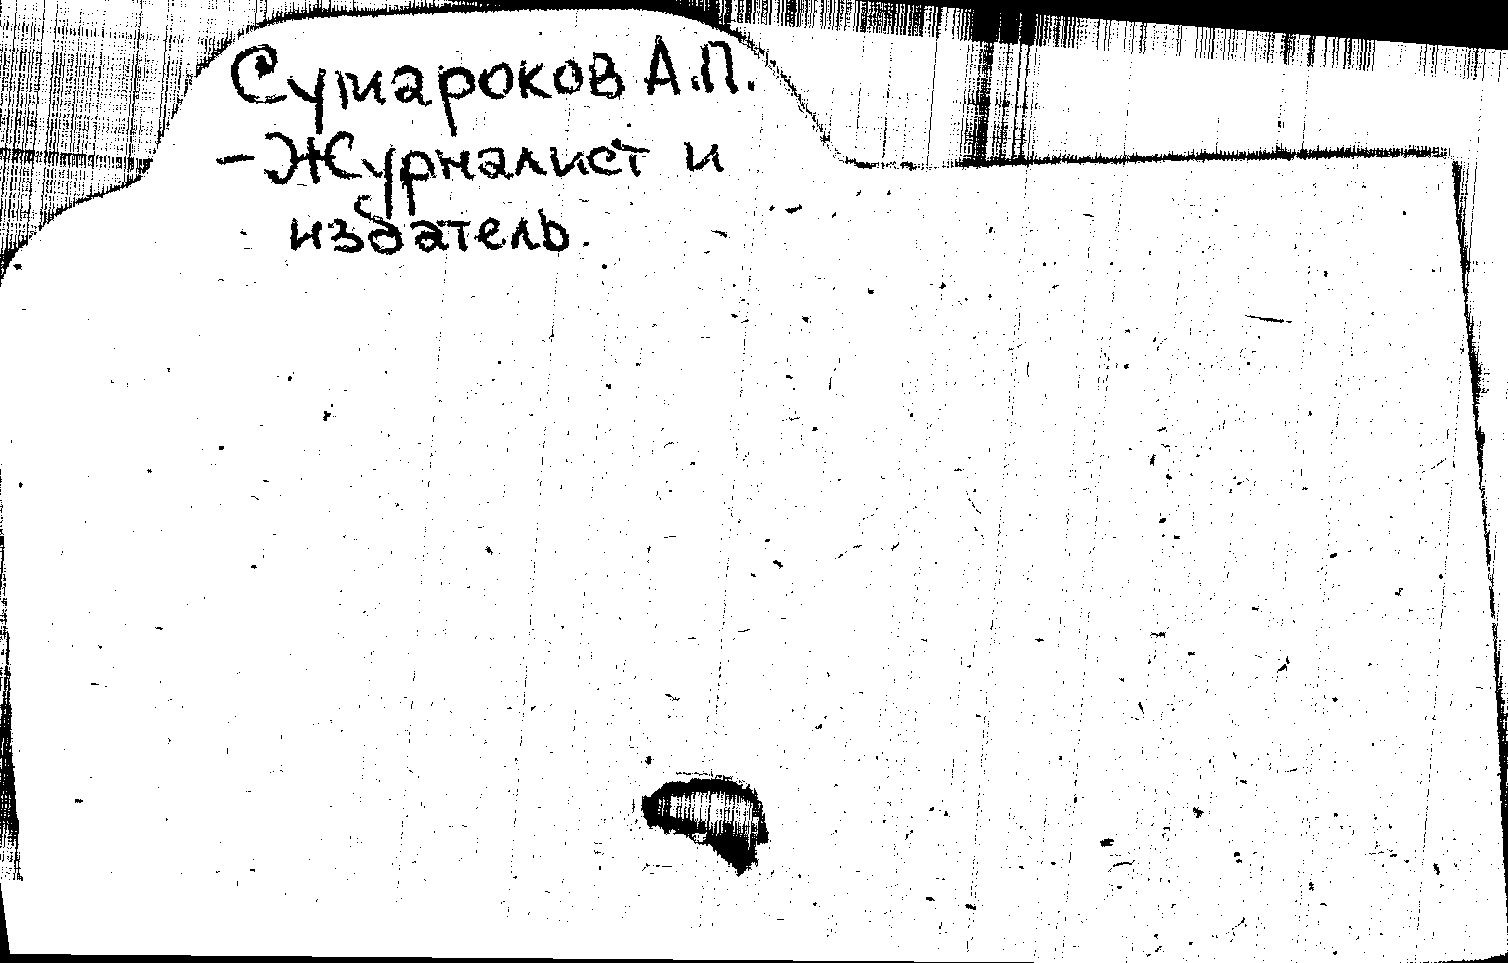 Сумароков А.П.
- Журналист и
издатель.